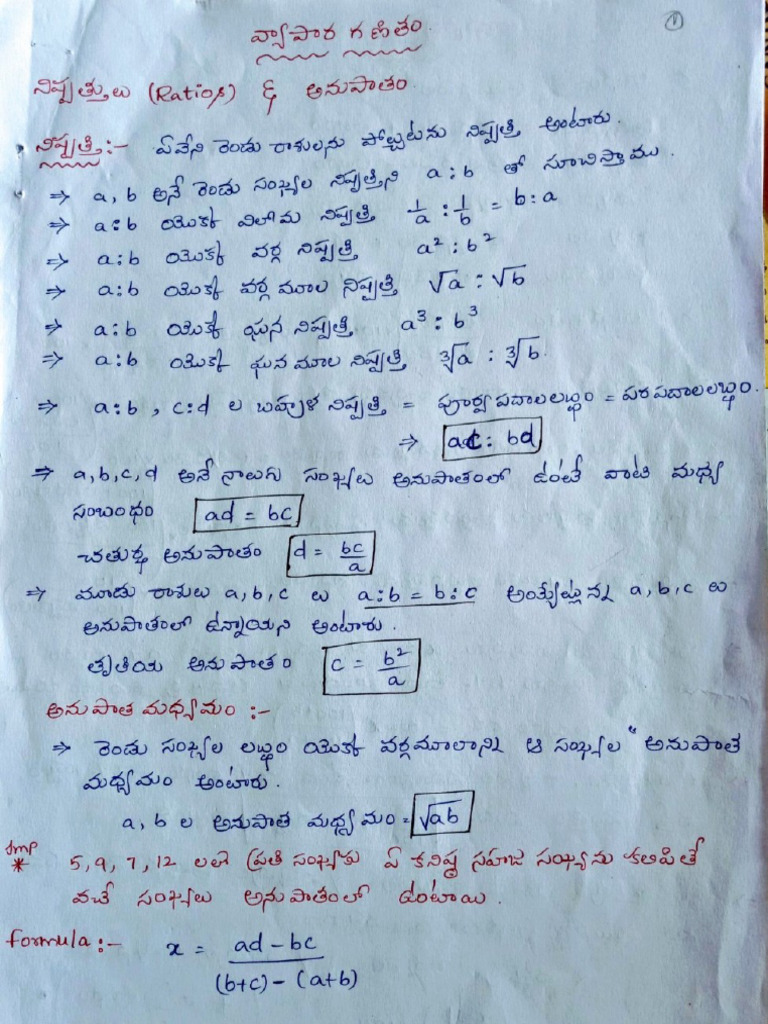 ①
వ్యాపార గణితం.
నిష్పత్తులు (Ratios) & అనుపాతం.
నిష్పత్తి :- ఏవేని రెండు రాశులను పోల్చుటను నిష్పత్తి అంటారు.
⇒ a, b అనే రెండు సంఖ్యల నిష్పత్తిని a : b తో సూచిస్తాము.
⇒ a:b యొక్క విలోమ నిష్పత్తి 1/a : 1/b = b:a
⇒ a:b యొక్క వర్గ నిష్పత్తి a² : b²
⇒ a:b యొక్క వర్గ మూల నిష్పత్తి √a : √b
⇒ a:b యొక్క ఘన నిష్పత్తి a³ : b³
⇒ a:b యొక్క ఘన మూల నిష్పత్తి ∛a : ∛b.
⇒ a:b, c:d ల బహుళ నిష్పత్తి = పూర్వ పదాలలబ్ధం = పర పదాలలబ్ధం.
⇒ ac : bd
⇒ a, b, c, d అనే నాలుగు సంఖ్యలు అనుపాతంలో ఉంటే వాటి మధ్య
సంబంధం ad = bc
చతుర్థ అనుపాతం d = bc/a
⇒ మూడు రాశులు a, b, c లు a:b = b:c a, b, c లు
అనుపాతంలో ఉన్నాయని అంటారు.
తృతీయ అనుపాతం c = b²/a
అనుపాత మధ్యమం :-
⇒ రెండు సంఖ్యల లబ్ధం యొక్క వర్గమూలాన్ని ఆ సంఖ్యల "అనుపాత
మధ్యమం అంటారు.
a, b ల అనుపాత మధ్యమం = √ab
Imp
* 5, 9, 7, 12 లలో ప్రతి సంఖ్యకు ఏ కనిష్ఠ సహజ సంఖ్యను కలిపితే
వచే సంఖ్యలు అనుపాతంలో ఉంటాయి.
formula :- x = ad - bc / (b+c) - (a+b)